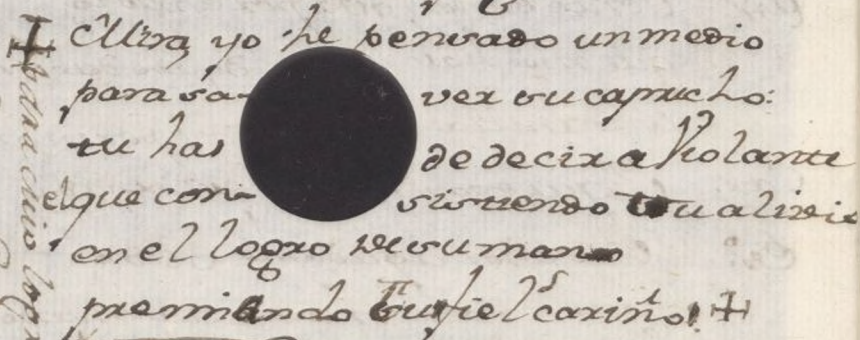 Mira yo he pensado un medio
para sa- ver su capricho:
tu has de decir a Violante
el que con- sistiendo tu alivio
en el logro de su mano
premiando tu fiel cariño,
para cuio logro